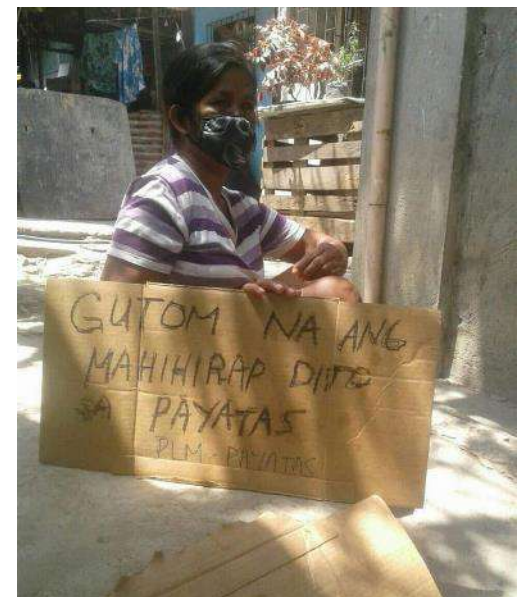 GUTOM NA ANG
MAHIHIRAP DITO
SA PAYATAS
PLM - PAYATAS